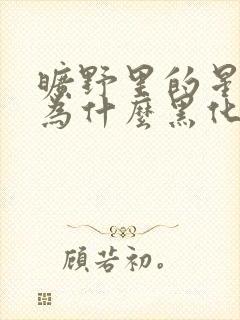 曠野里的星
為什麼黑化
顧若初。